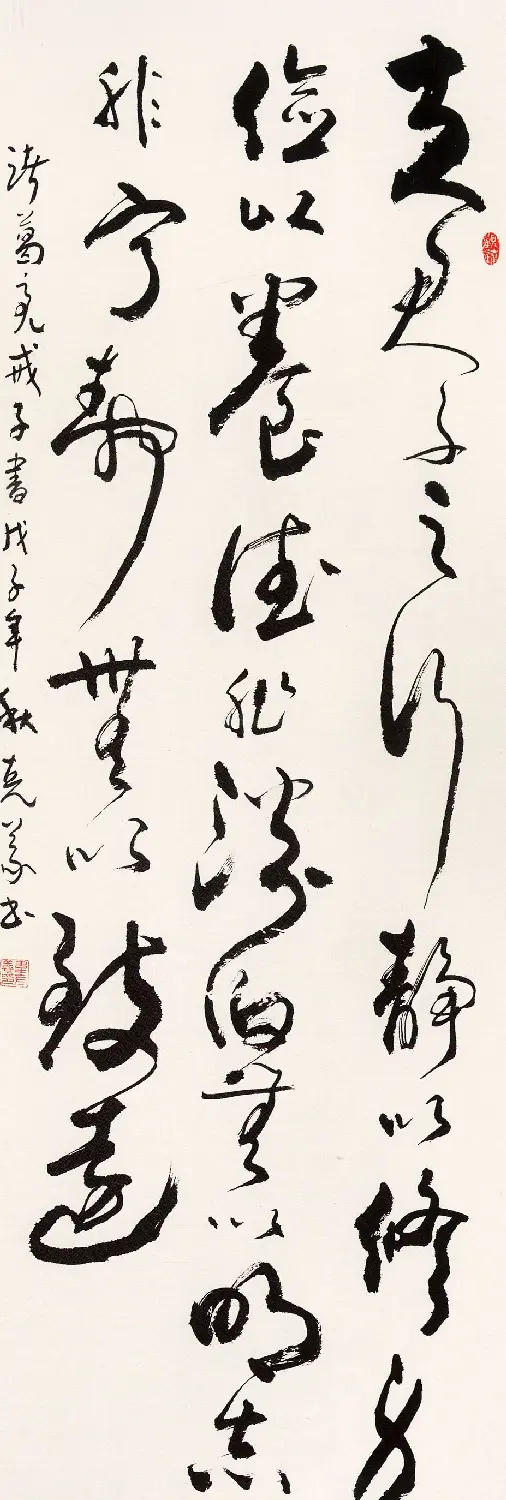 夫君子之行静以修身
俭以养德非澹泊无以明志
非宁静无以致远
诸葛亮戒子书戊子年秋克义书